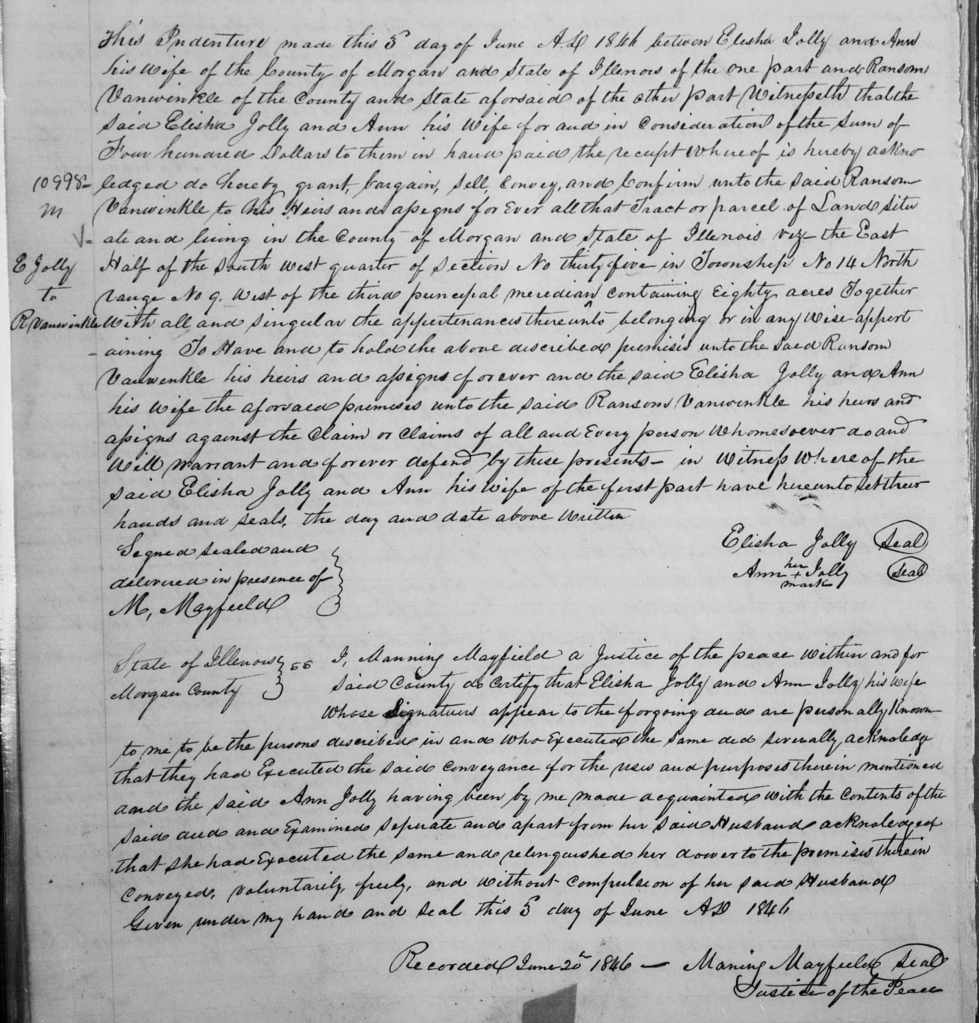 This Indenture made this 5 day of June AD 1846 between Elisha Jolly and Ann
his Wife of the County of Morgan and State of Illenois of the one part and Ransom
Vanwinkle of the County and State aforsaid of the other part Witnesseth that the
said Elisha Jolly and Ann his Wife for and in Consideration of the Sum of
Four hundred Dollars to them in hand paid the receipt Where of is hereby ackno
10998 ledged do hereby grant, bargain, Sell, Convey, and Confirm unto the Said Ransom
m Vanwinkle to his Heirs and assigns for Ever all that Tract or parcel of Land Situ
ate and living in the County of Morgan and State of Illenois viz the East
E Jolly Half of the South West quarter of Section No thirty five in Township No 14 North
to range No 9. West of the third principal meredian Containing Eighty acres Together
R Vanwinkle With all and Singular the appertenancis thereunto belonging or in any Wise appert
aining To Have and to hold the above discribed premisis unto the Saed Ransom
Vanwinkle his heirs and assigns forever and the said Elisha Jolly and Ann
his Wife the aforsaed premises unto the said Ransom Vanwinkle his heirs and
assigns against the Claim or Claims of all and Every person Whomesoever do and
Will warrant and forever defend by these presents – in Witness Where of the
Said Elisha Jolly and Ann his Wife of the first part have hereunto Set their
hands and seals, the day and date above Written
Segned sealed and
delivered in presence of
M, Mayfield
Elisha Jolly Seal
Ann her + mark Jolly Seal
State of Illenois } ss
Morgan County
I, Manning Mayfield a Justice of the peace Within and for
Said County do Certify that Elisha Jolly and Ann Jolly his Wife
Whose Signatures appear to the forgoing deed are personally Known
to me to be the persons described in and Who Executed the same ded severally acknoledge
that they had Executed the said Conveyance for the uses and purposes therein mentioned
and the said Ann Jolly having been by me made acquainted With the Contents of the
Said deed and Examined Seperate and apart from her Said Husband acknoledged
that She had Executed the Same and relinquished her dower to the premises therein
Conveyed, Voluntarily, freely, and Without Compulsion of her Said Husband
Given under my hand and Seal this 5 day of June AD 1846
Recorded June 20 1846 – Maning Mayfield Seal
Justice of the Peace